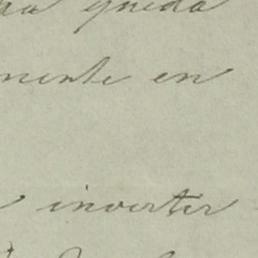 queda
nente en
invertir